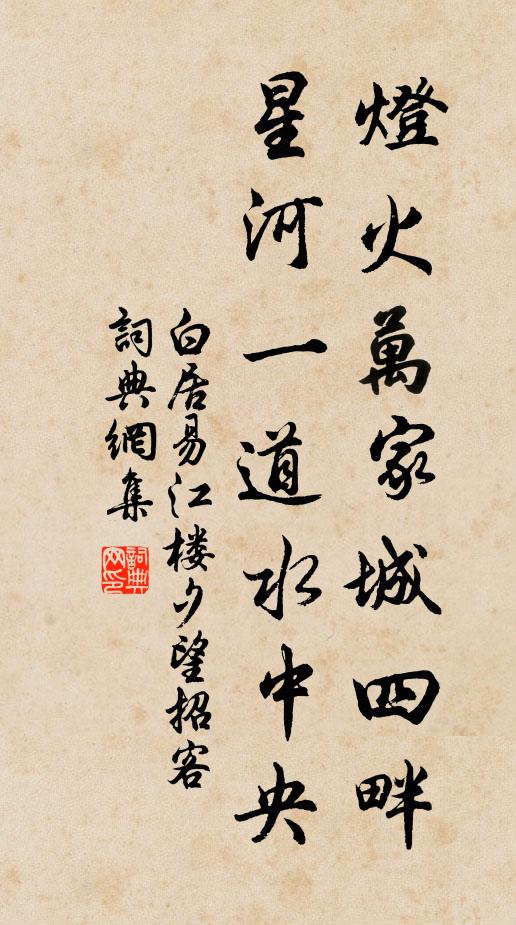 燈火萬家城四畔
星河一道水中央
白居易江楼夕望招客
詞典網集
詞典網印